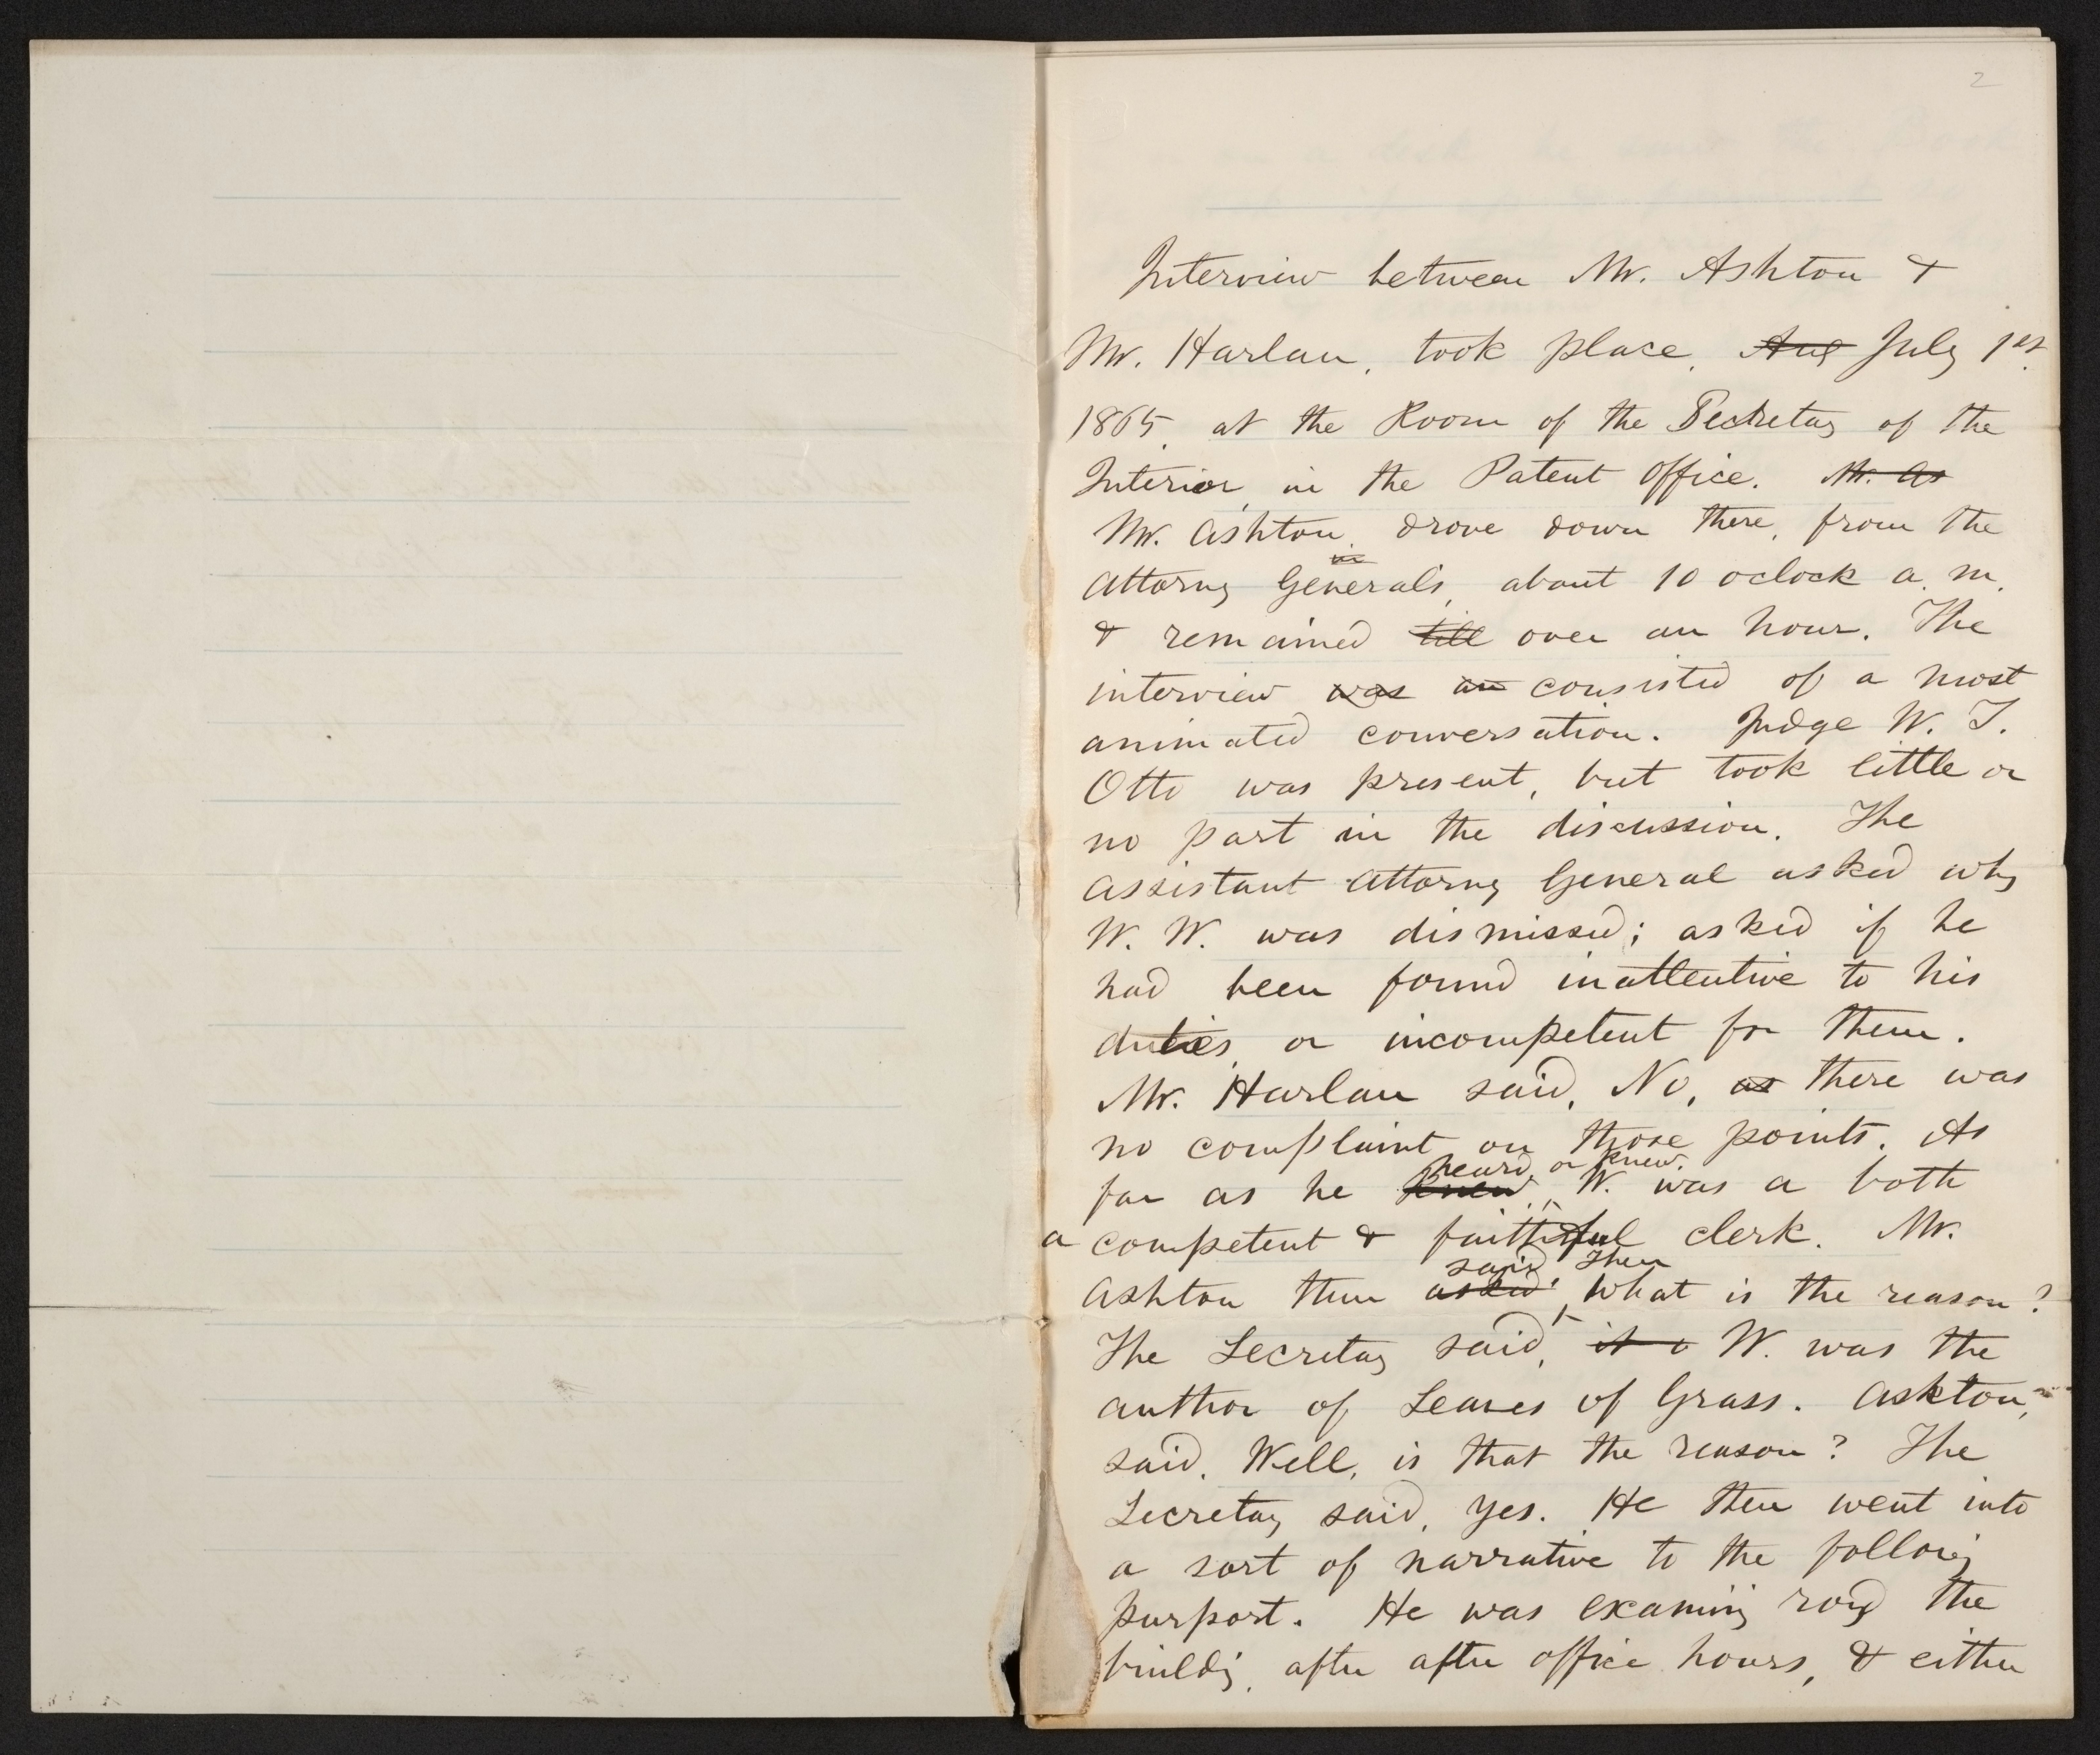 2
Interview between Mr. Ashton &
Mr. Harlan, took place, Aug July 1st.
1865, at the Room of the Secretay of the
Interior, in the Patent Office. Mr. As
Mr. Ashton, drove down there, from the
in
Attorny Generals, about 10 oclock a. m.
& remained till over an hour. The
interview was an consisted of a most
animated conversation. Judge W. T.
Otto was present, but took little or
no part in the discussion. The
Assistant Attorny General asked why
W. W. was dismissed; asked if he
had been found inattentive to his
duties, or incompetent for them.
Mr. Harlan said, No, as there was
no complaint on those points. As
heard, or knew,
far as he knew, W. was a both
a competent & faithful clerk. Mr.
said, Then
Ashton then asked, what is the reason?
The Secretay said, it W. was the
author of Leaves of Grass. Ashton,
said, Well, is that the reason? The
Secretay said, yes. He then went into
a sort of narrative to the followig
purport. He was examinig round the
buildig, after after office hours, & either